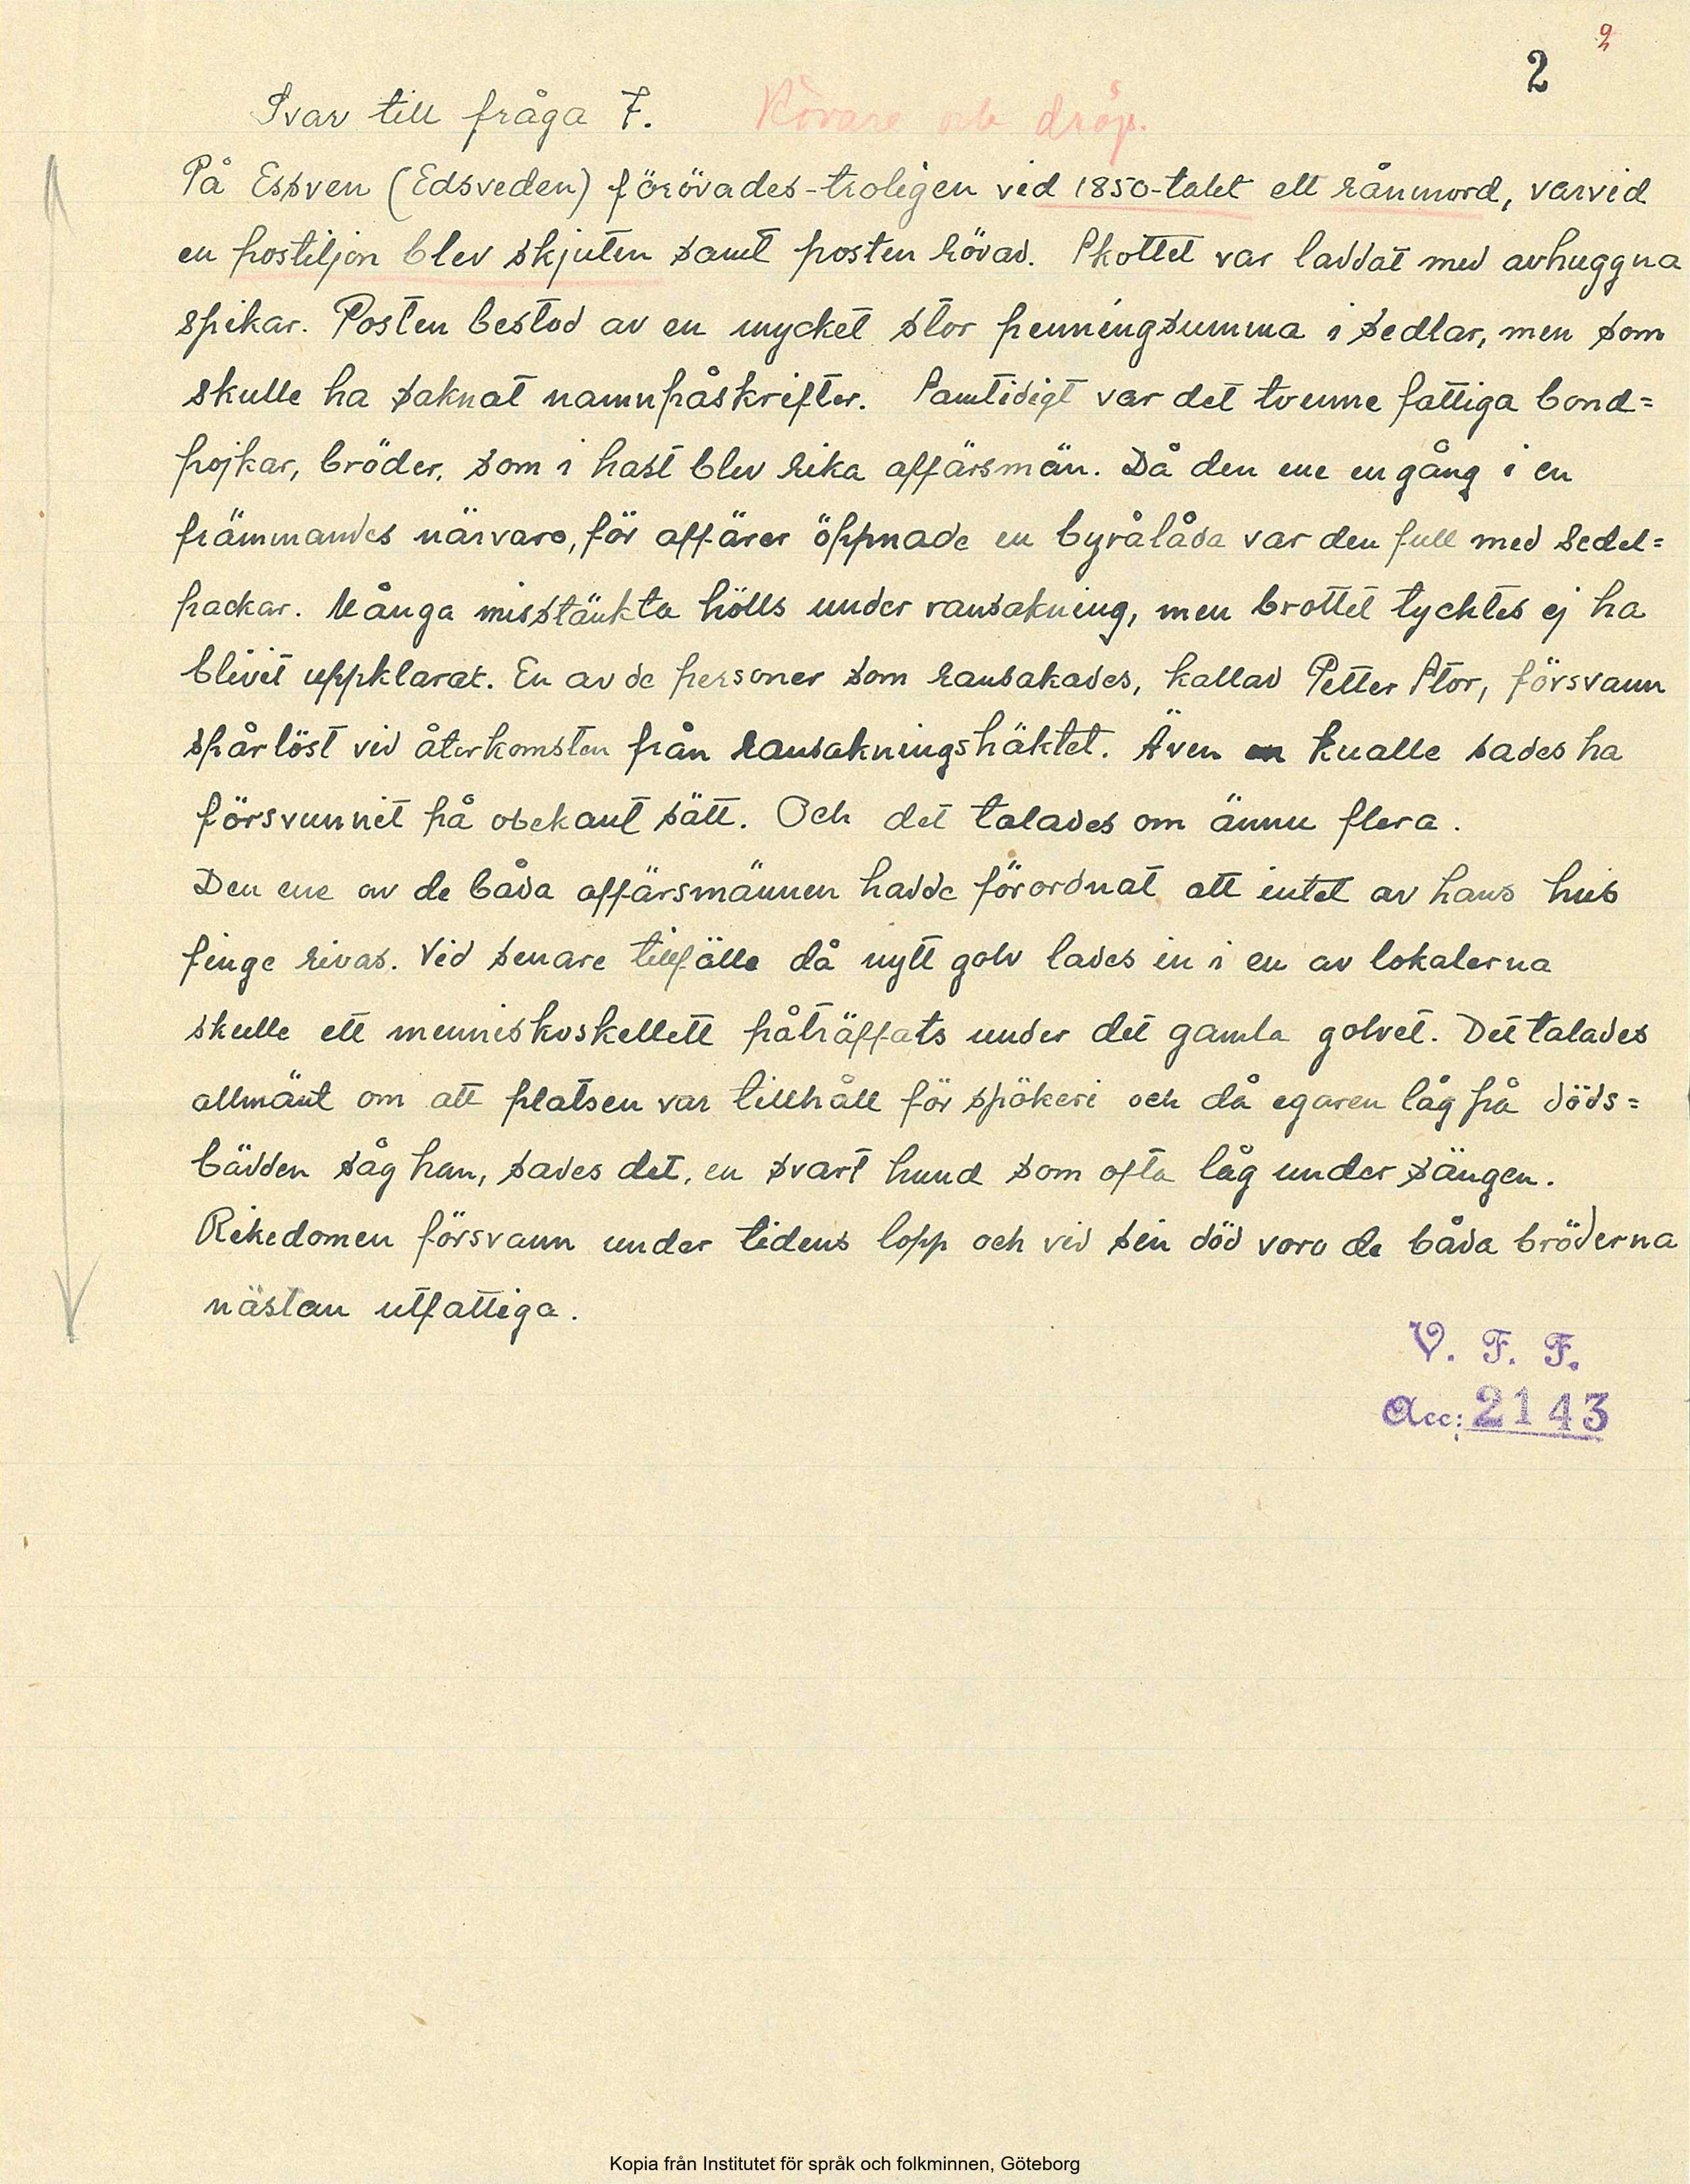 2
2
Svar till fråga 7.
Rövare och dråp.
På Essven (Edsveden) förövades-troligen vid 1850-talet ett rånmord, varvid
en postiljon blev skjuten samt posten rövad. Skottet var laddat med avhuggna
spikar. Posten bestod av en mycket stor penningsumma i sedlar, men som
skulle ha saknat namnpåskrifter. Samtidigt var det tvenne fattiga bond=
pojkar, bröder, som i hast blev rika affärsmän. Då den ene en gång i en
främmandes närvaro, för affärer öppnade en byrålåda var den full med sedel=
packar. Många misstänkta hölls under ransakning, men brottet tycktes ej ha
blivit uppklarat. En av de personer som ransakades, kallad Petter Stor, försvann
spårlöst vid återkomsten från ransakningshäktet. Även knalle sades ha
försvunnit på obekant sätt. Och det talades om ännu flera.
Den ene av de båda affärsmännen hadde förordnat att intet av hans hus
finge rivas. Vid senare tillfälle då nytt golv lades in i en av lokalerna
skulle ett menniskoskellett påträffats under det gamla golvet. Det talades
allmänt om att platsen var tillhåll för spökeri och då egaren låg på döds=
bädden såg han, sades det, en svart hund som ofta låg under sängen.
Rikedomen försvann under tidens lopp och vid sin död voro de båda bröderna
nästan utfattiga.
V. F. F.
Acc: 2143
Kopia från Institutet för språk och folkminnen, Göteborg